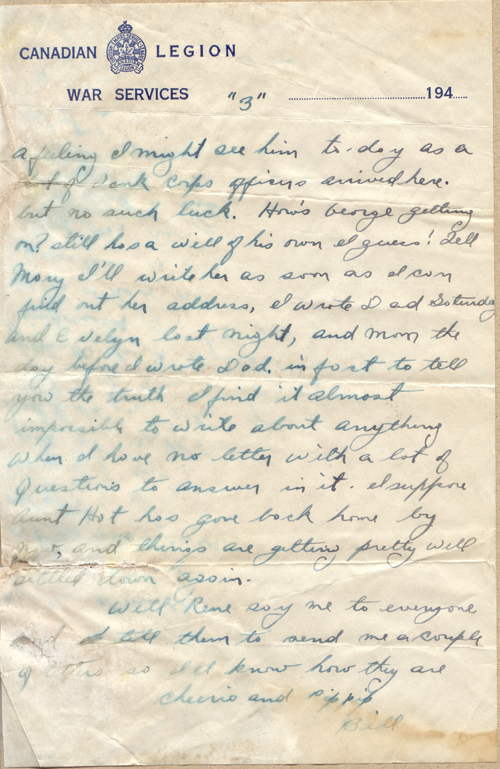 CANADIAN LEGION
WAR SERVICES "3" 194
a feeling I might see him to-day as a
lot of Tank Corps officers arrived here.
but no such luck. How's George getting
on? still has a will of his own I guess! Tell
Mary I'll write her as soon as I can
find out her address, I wrote Dad Saturday
and Evelyn last night, and Mom the
day before I wrote Dad. in fact to tell
you the truth I find it almost
impossible to write about anything
when I have no letter with a lot of
questions to answer in it. I suppose
Aunt Hat has gone back home by
now, and things are getting pretty well
settled down again.
Well Rene say me to everyone
and tell them to send me a couple
of letters so I'll know how they are
Cheerio and pip pip
Bill